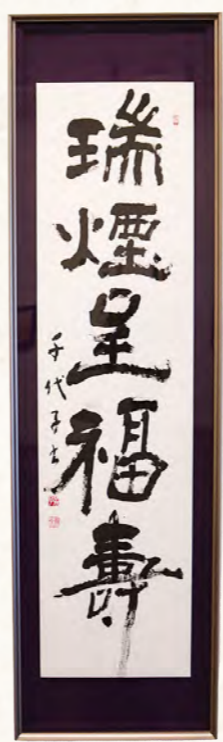 瑞煙呈福壽
千代子書